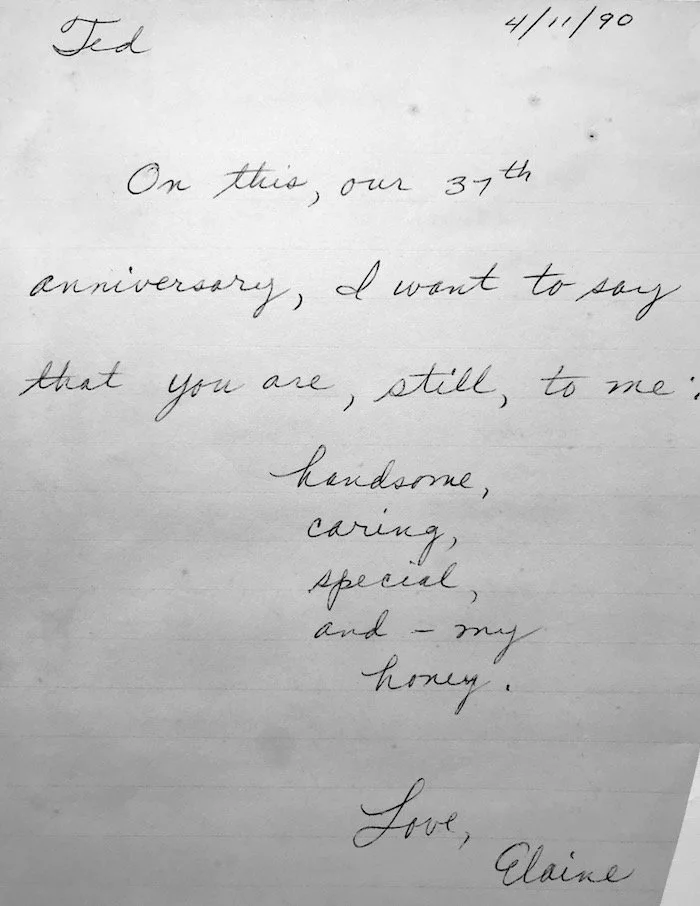 Ted 4/11/90
On this, our 37th
anniversary, I want to say
that you are, still, to me:
handsome,
caring,
special,
and - my
honey.
Love,
Elaine